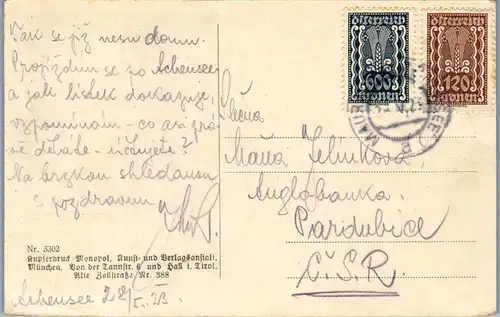 Tak se již nesu domu.
Projíždím se po Achensee
a jak lístek dokazuje
vzpomínám - co asi prá-
vě děláte - účtujete?
Na brzkou shledanou
s pozdravem
Nr. 3302
Kupferdruck Monopol, Kunst- und Verlagsanstalt,
München, Von der Tannstr. 6 und Hall i. Tirol,
Alte Zollstraße Nr. 388
Achensee 28/5. 23
österreich
600
kronen
österreich
120
kronen
MAUR
Slečna
Máňa Jelínková
Anglobanka
Pardubice
Č.S.R.